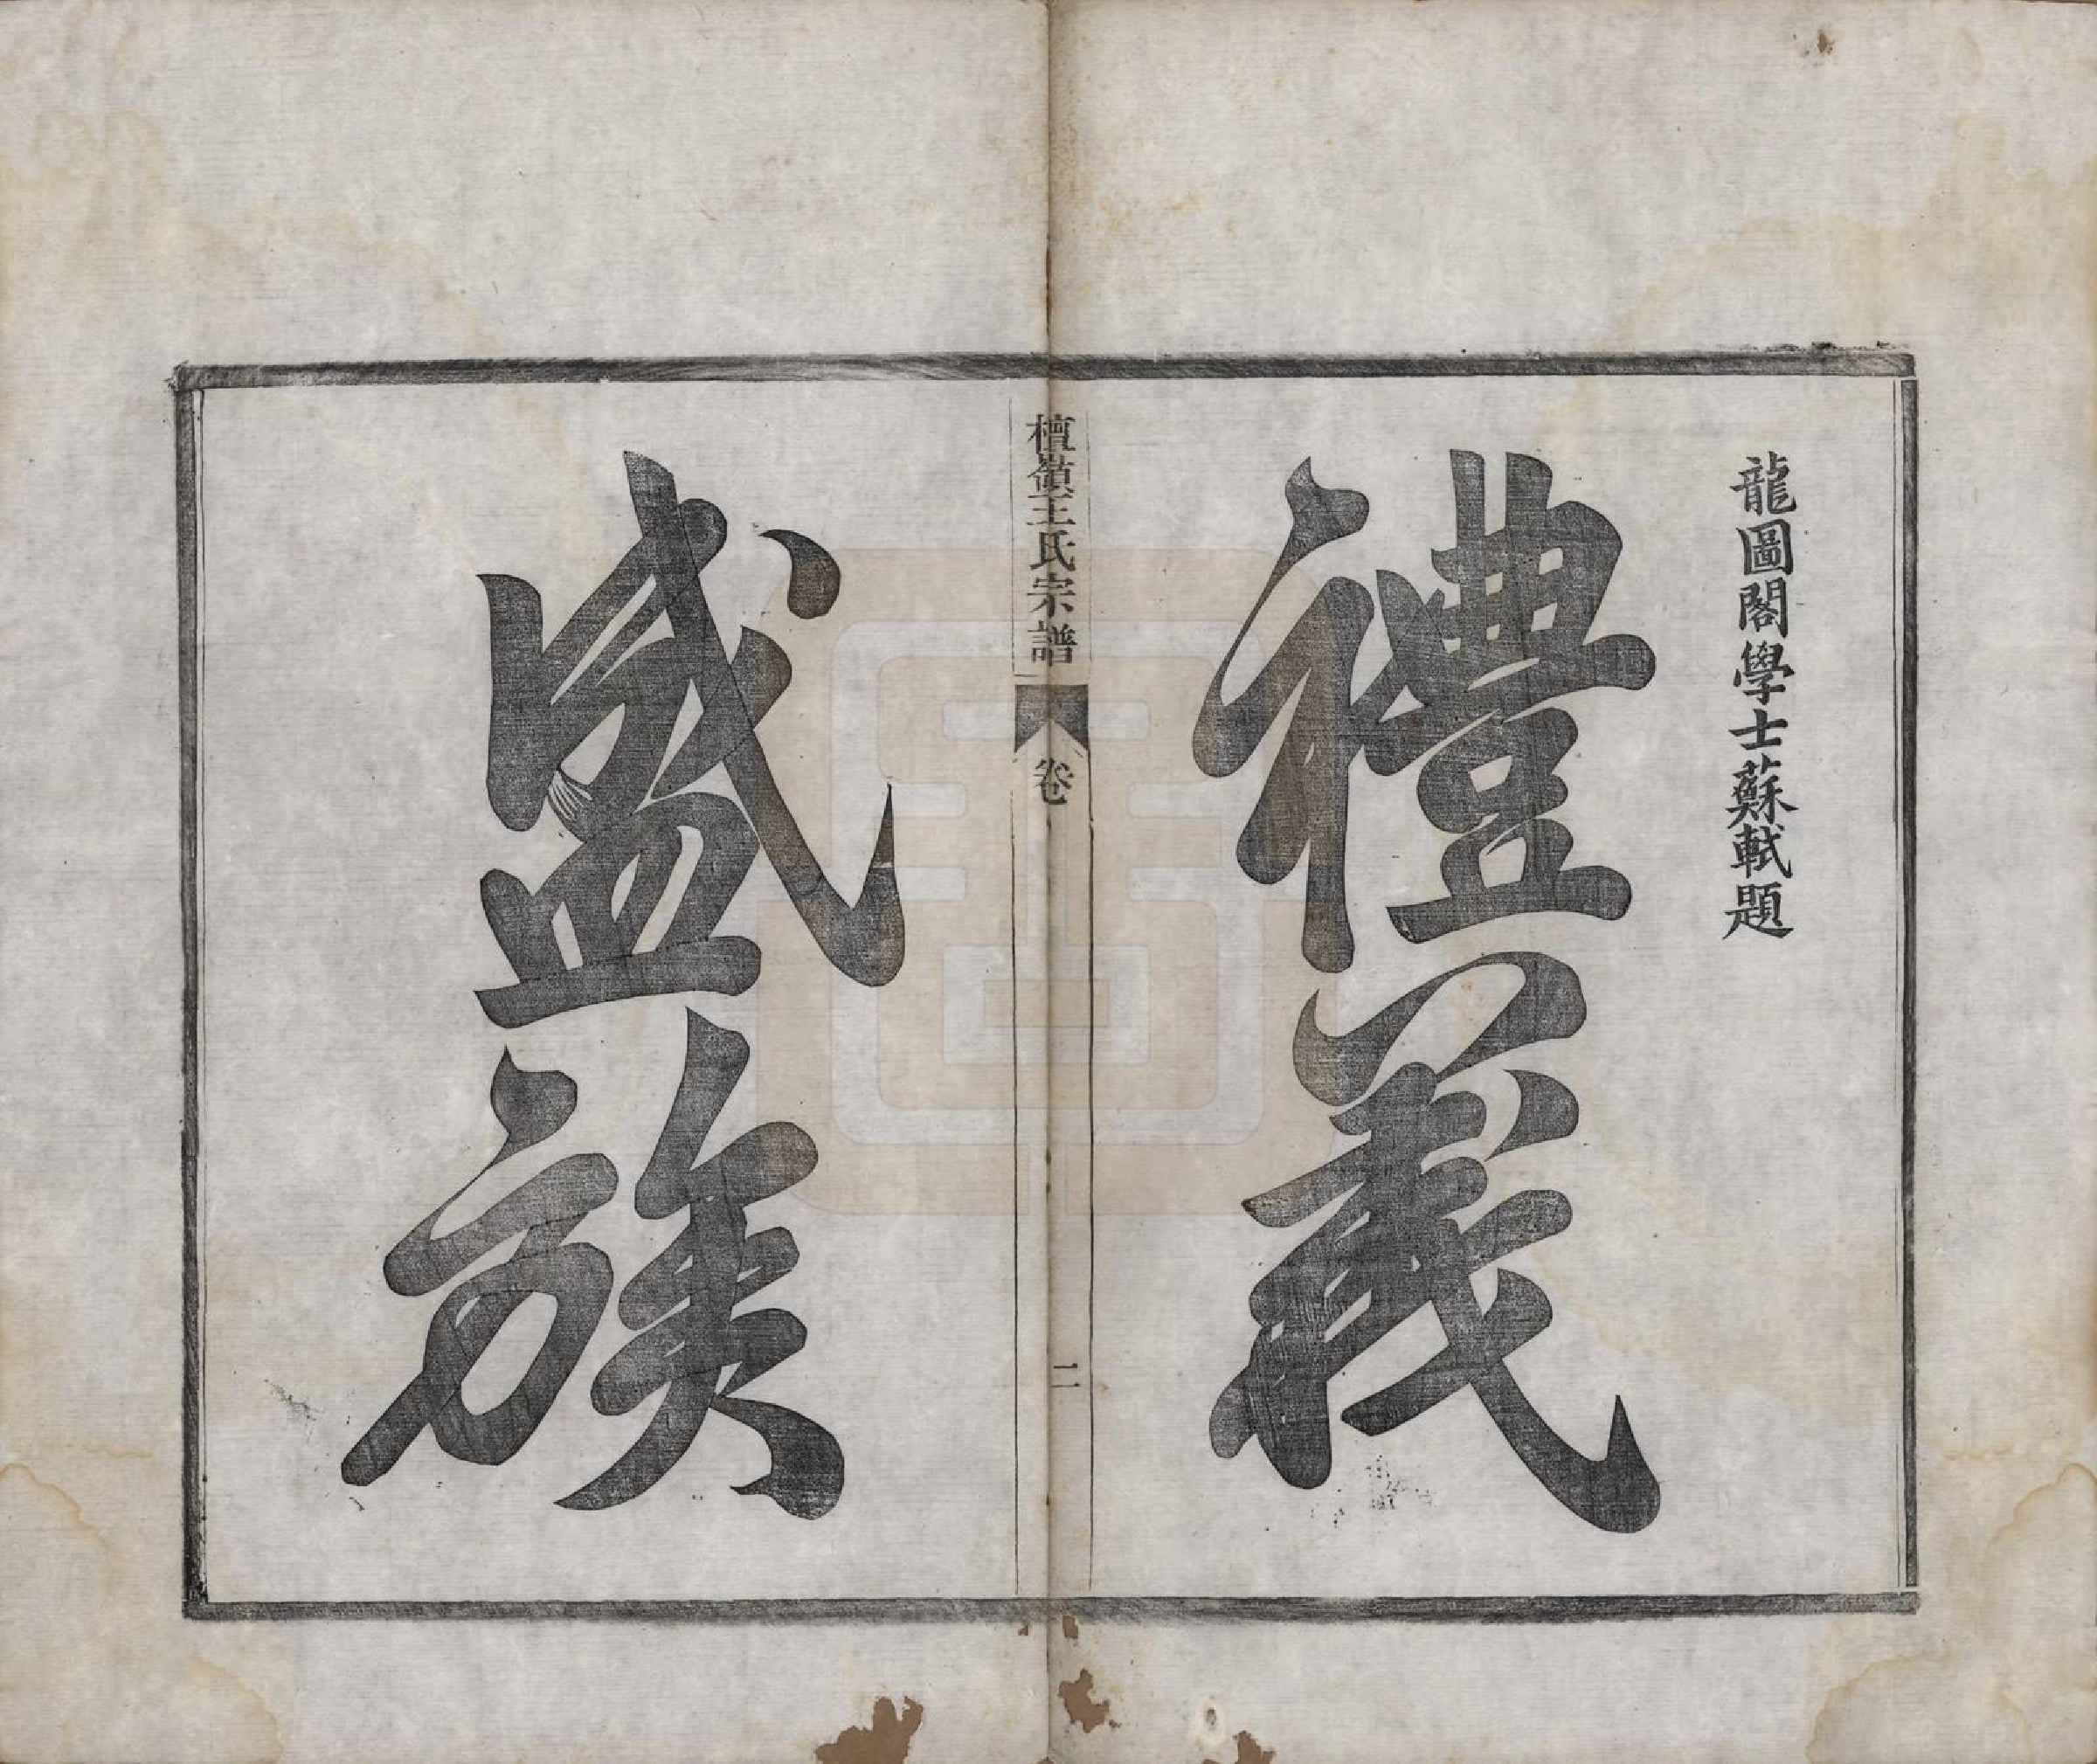 龍圖閣學士蘇軾題
禮義
檀嶺王氏宗譜 卷 二
盛族